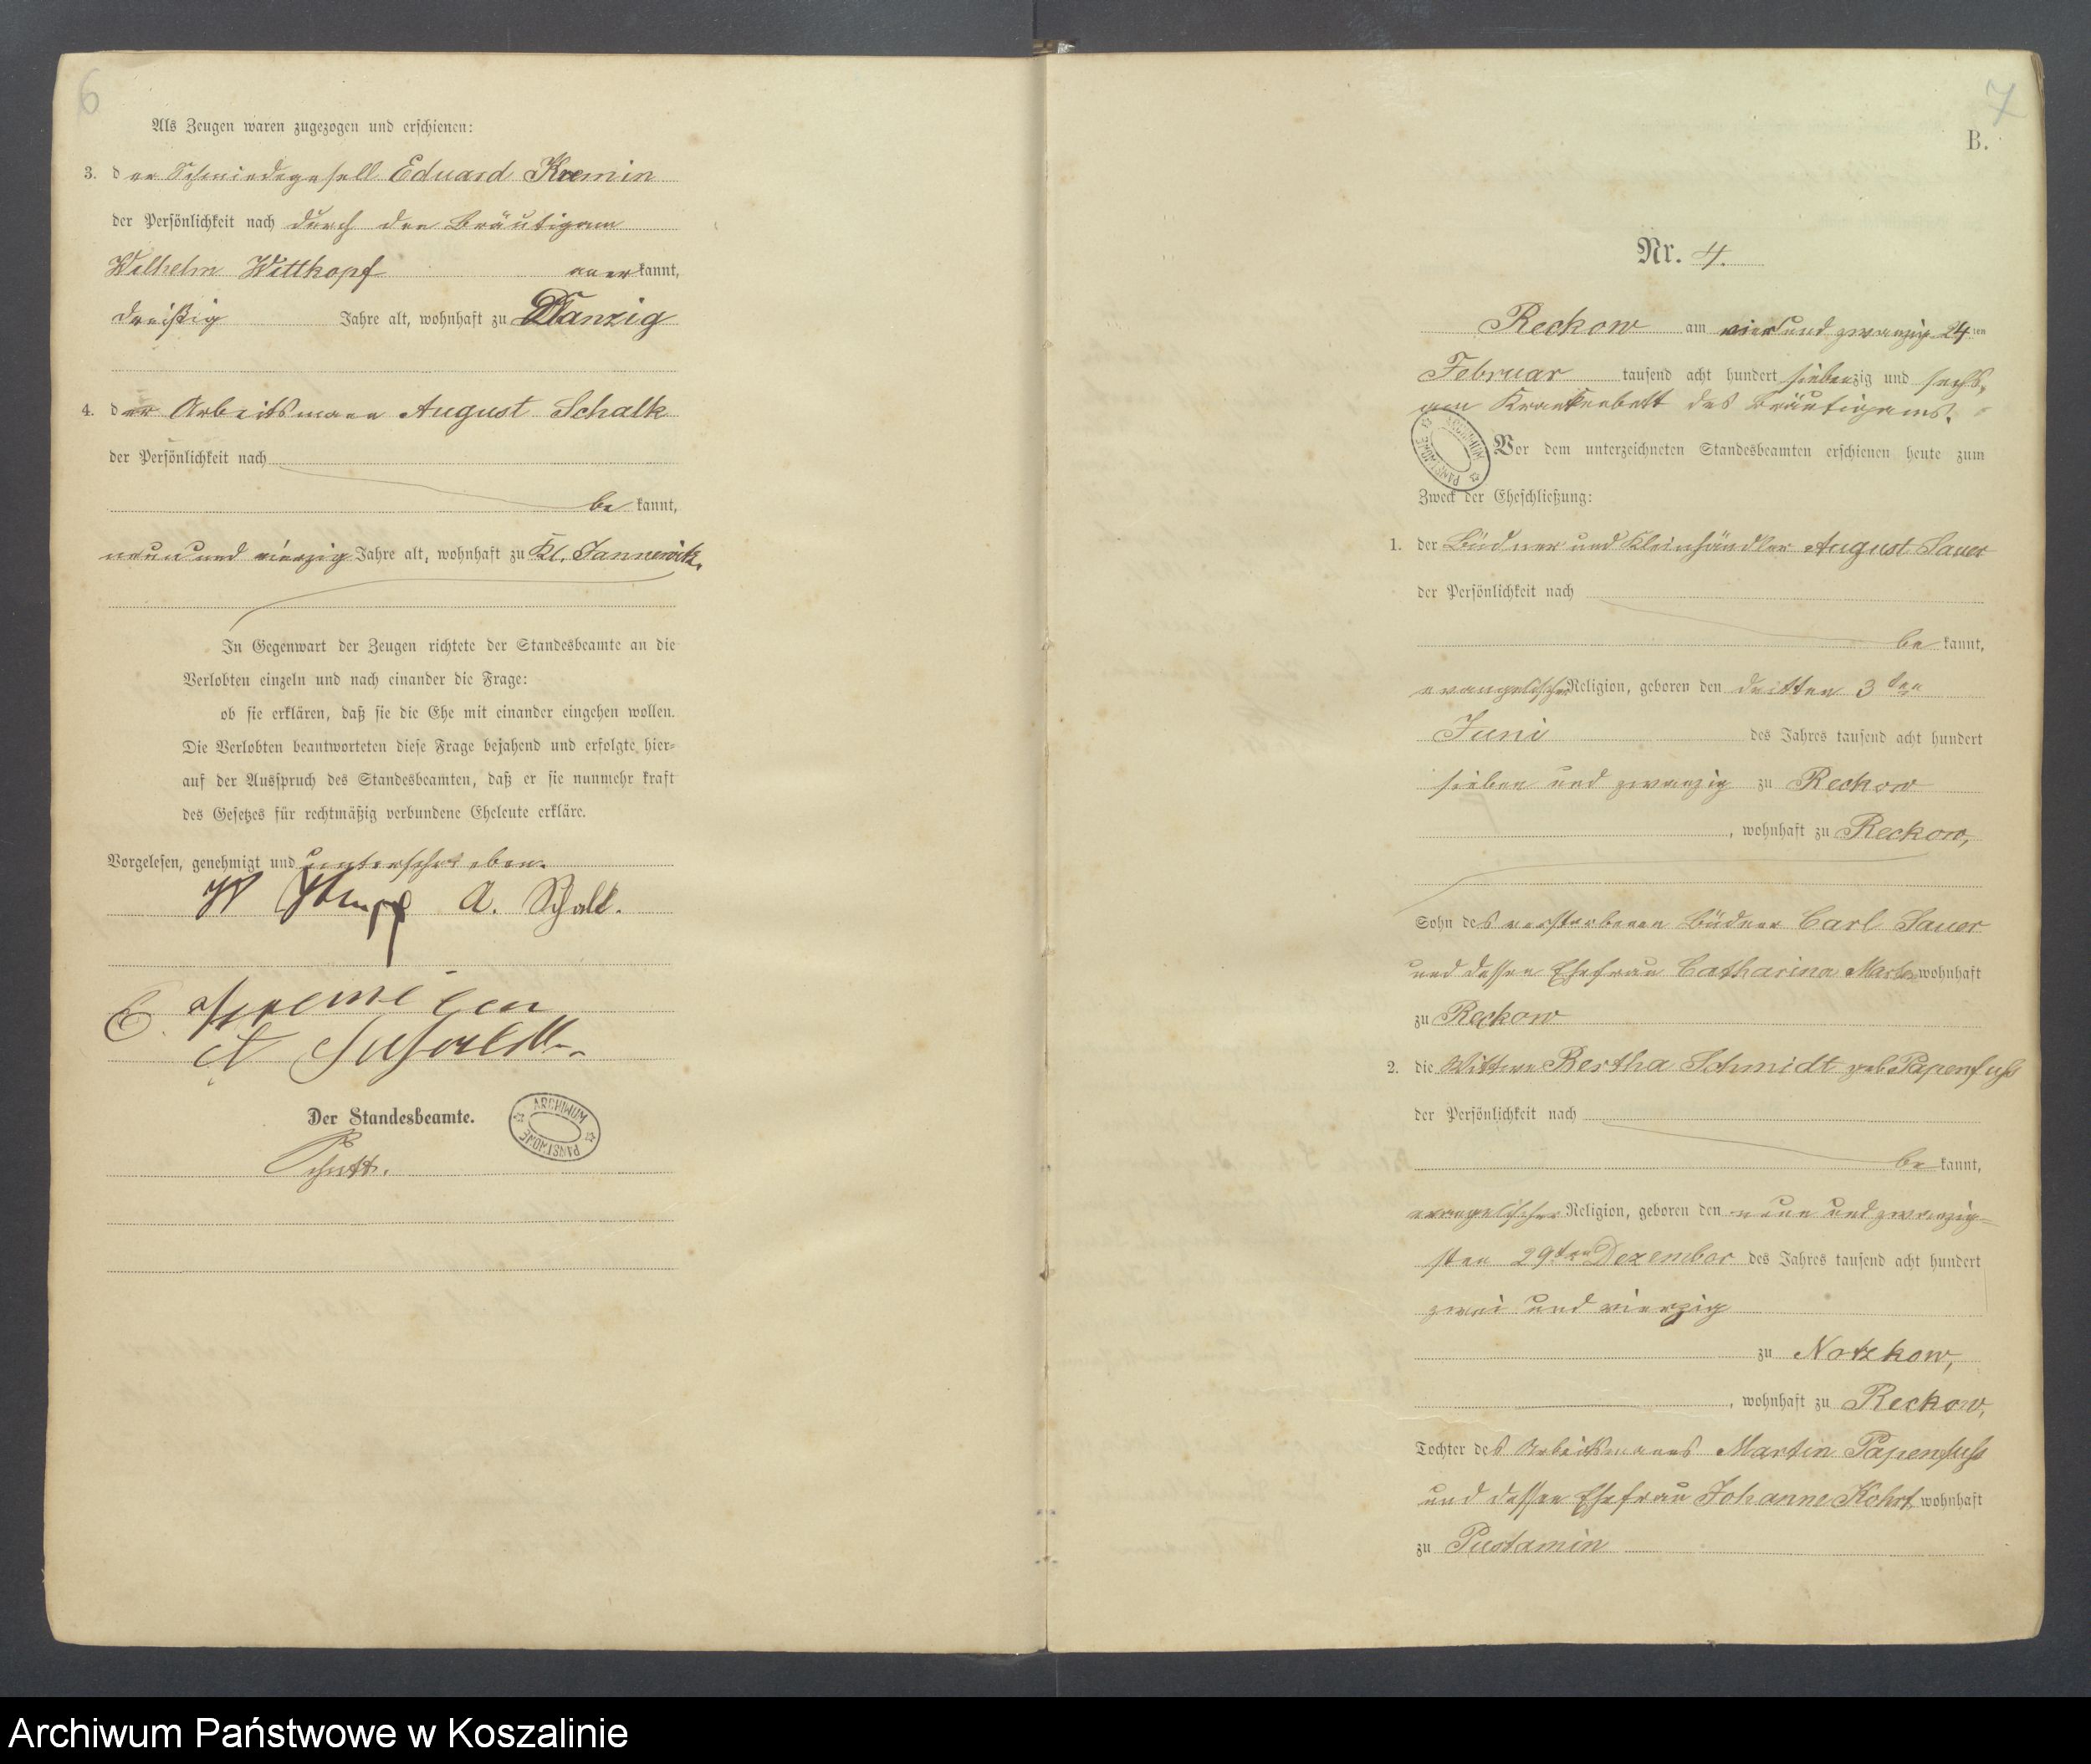 6
Als Zeugen waren zugezogen und erschienen:
3. der Schmiedegesell Eduard Kremin
der Persönlichkeit nach durch den Bräutigam
Wilhelm Wittkopf anerkannt,
dreißig Jahre alt, wohnhaft zu Danzig
4. der Arbeitsmann August Schalk
der Persönlichkeit nach
bekannt,
neun und vierzig Jahre alt, wohnhaft zu Kl. Jannewitz.
In Gegenwart der Zeugen richtete der Standesbeamte an die
Verlobten einzeln und nach einander die Frage:
ob sie erklären, daß sie die Ehe mit einander eingehen wollen.
Die Verlobten beantworteten diese Frage bejahend und erfolgte hier-
auf der Ausspruch des Standesbeamten, daß er sie nunmehr kraft
des Gesetzes für rechtmäßig verbundene Eheleute erkläre.
Vorgelesen, genehmigt und unterschrieben.
W A. Schalk.
E.
A
Der Standesbeamte.
ARCHIWUM PAŃSTWOWE
7
B.
Nr. 4.
Reckow am vier und zwanzig 24ten
Februar tausend acht hundert siebenzig und sechs,
am Krankenbett des Bräutigams.
ARCHIWUM PAŃSTWOWE
Vor dem unterzeichneten Standesbeamten erschienen heute zum
Zweck der Eheschließung:
1. der Büdner und Kleinhändler August Sauer
der Persönlichkeit nach
bekannt,
evangelischer Religion, geboren den dritten 3ten
Juni des Jahres tausend acht hundert
sieben und zwanzig zu Reckow
, wohnhaft zu Reckow,
Sohn des verstorbenen Büdner Carl Sauer
und dessen Ehefrau Catharina wohnhaft
zu Reckow
2. die Wittwe Bertha Schmidt geb Papenfuß
der Persönlichkeit nach
bekannt,
evangelischer Religion, geboren den neun und zwanzig-
sten 29ten Dezember des Jahres tausend acht hundert
zwei und vierzig
zu Notzkow,
, wohnhaft zu Reckow,
Tochter des Arbeitsmanns Martin Papenfuß
und dessen Ehefrau Johanne Kohrt, wohnhaft
zu Pustamin
Archiwum Państwowe w Koszalinie